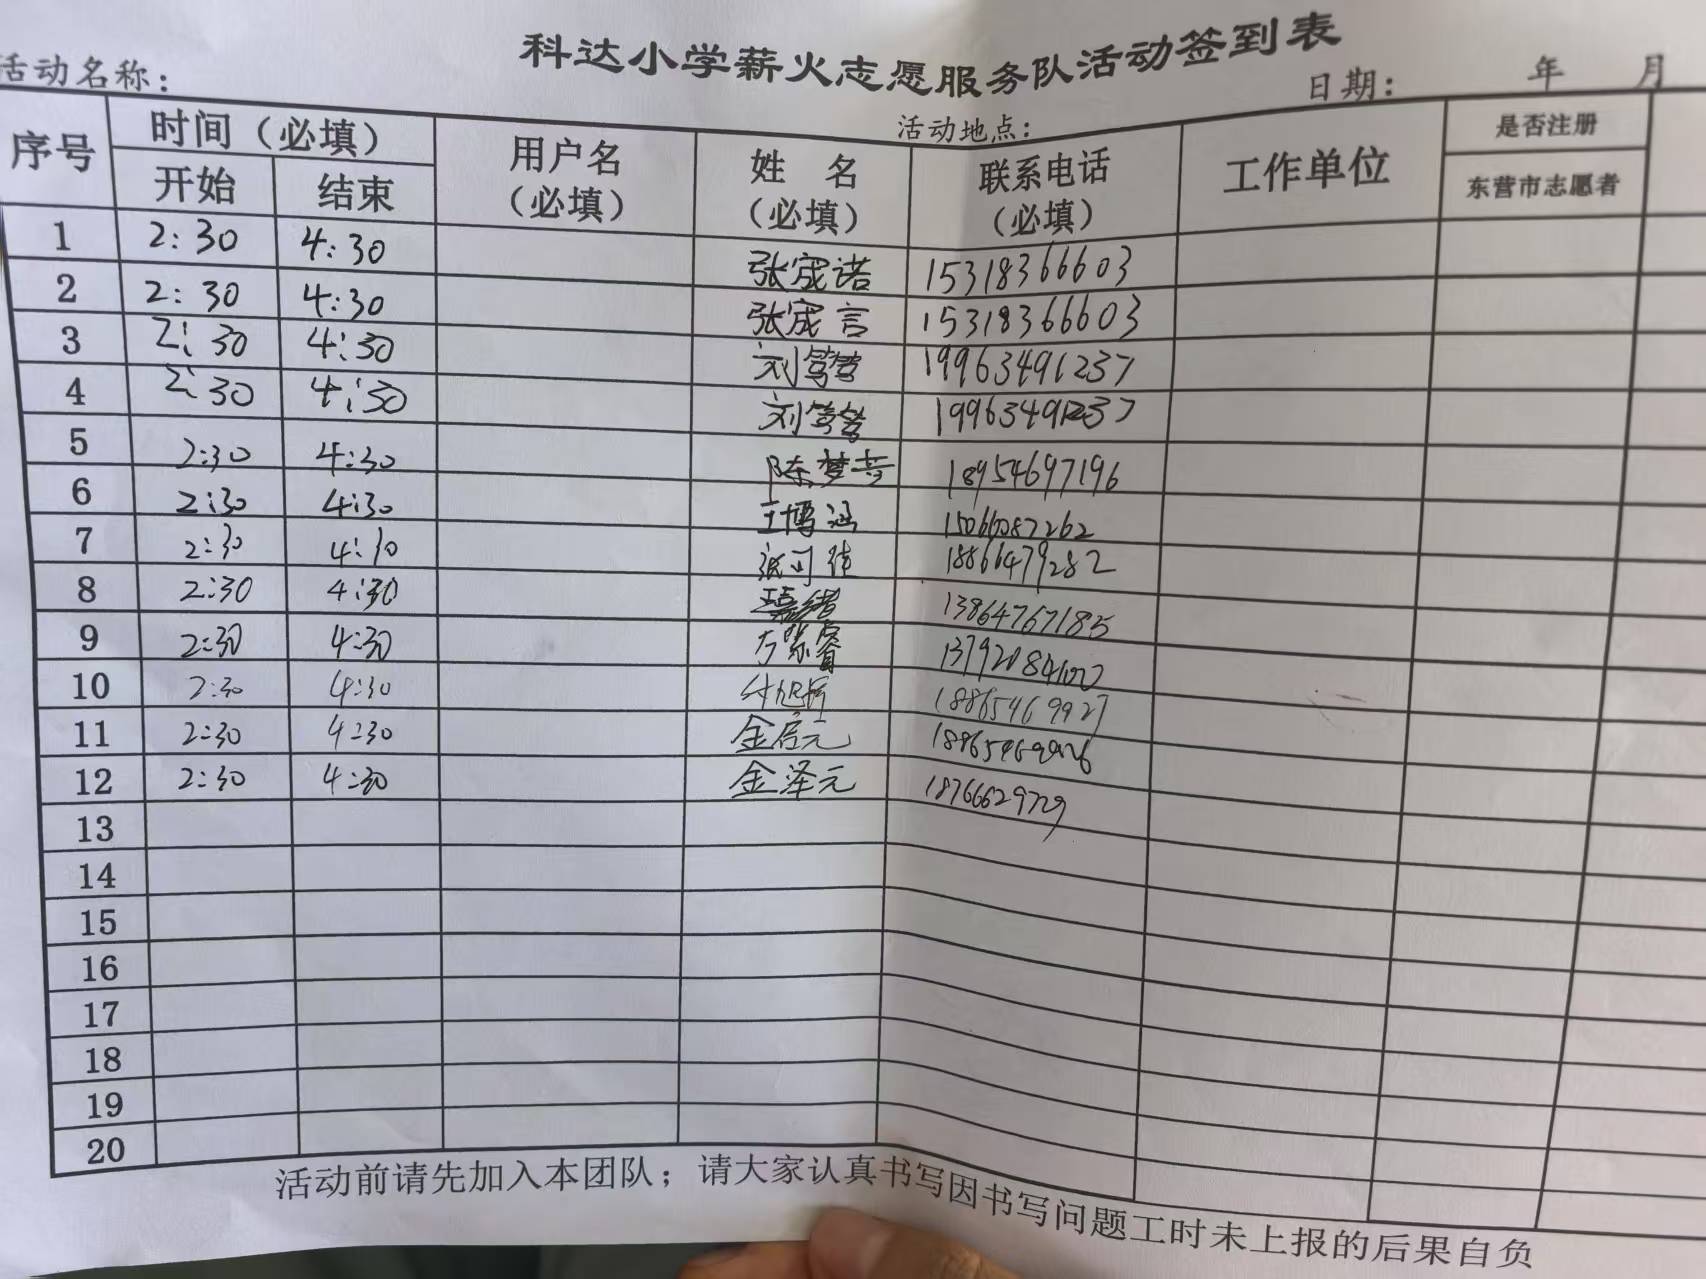 科达小学薪火志愿服务队活动签到表
活动名称： 活动地点： 日期： 年 月
序号 时间（必填） 用户名（必填） 姓 名（必填） 联系电话（必填） 工作单位 是否注册
开始 结束 东营市志愿者
1 2:30 4:30 张宬诺 15318366603
2 2:30 4:30 张宬言 15318366603
3 2:30 4:30 刘笃 19963491237
4 2:30 4:30 刘 19963491237
5 2:30 4:30 陈梦 18954697196
6 2:30 4:30 王博涵 15066087262
7 2:30 4:30 张可佳 18866479282
8 2:30 4:30 13864767185
9 2:30 4:30
10 2:30 4:30 18865469927
11 2:30 4:30 金启元
12 2:30 4:30 金泽元 18766629729
13
14
15
16
17
18
19
20
活动前请先加入本团队；请大家认真书写因书写问题工时未上报的后果自负